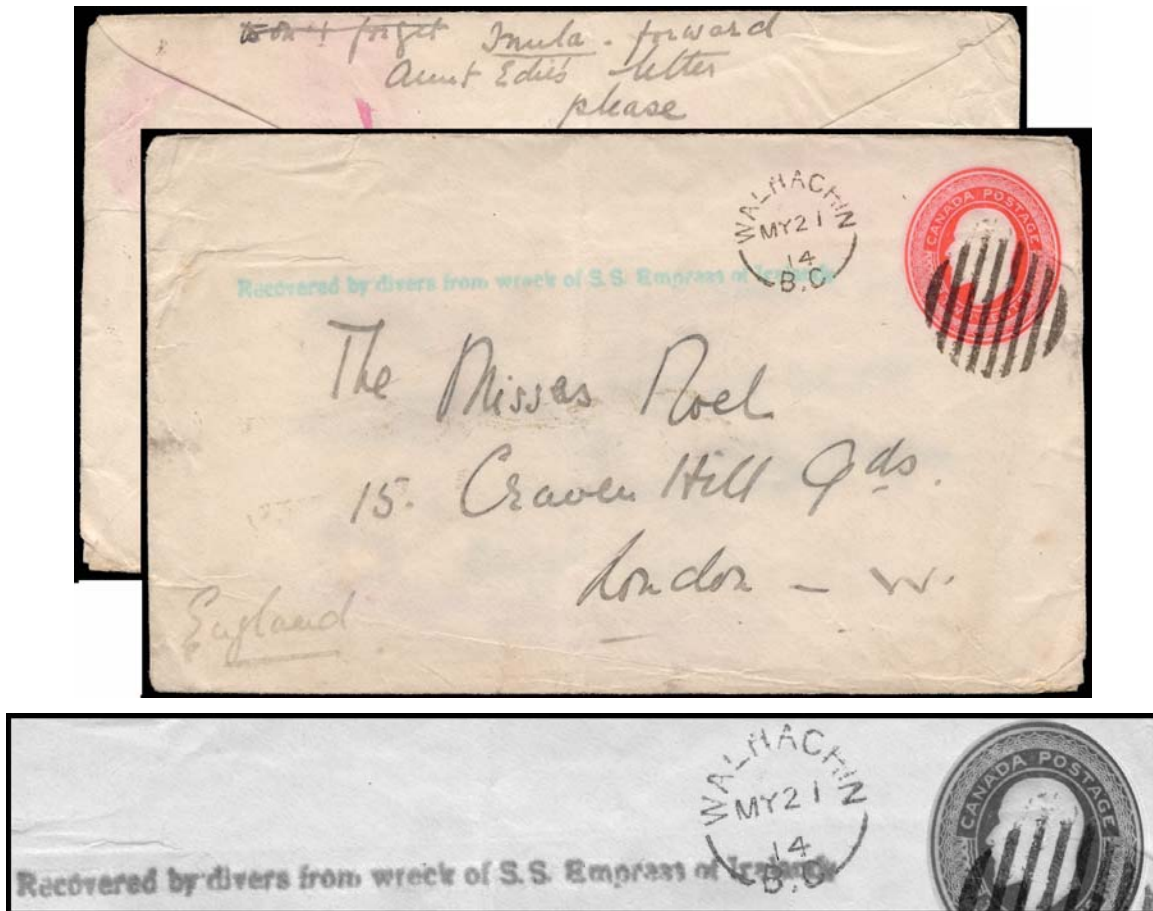 forget Inula - forward
Aunt Edie's letter
please
WALHACHIN
MY 21
14
B.C
CANADA POSTAGE
Recovered by divers from wreck of S.S. Empress of Ireland.
The Misses Noel
15. Craven Hill Gds.
London - W.
England
WALHACHIN
MY 21
14
B.C
CANADA POSTAGE
Recovered by divers from wreck of S.S. Empress of Ireland.